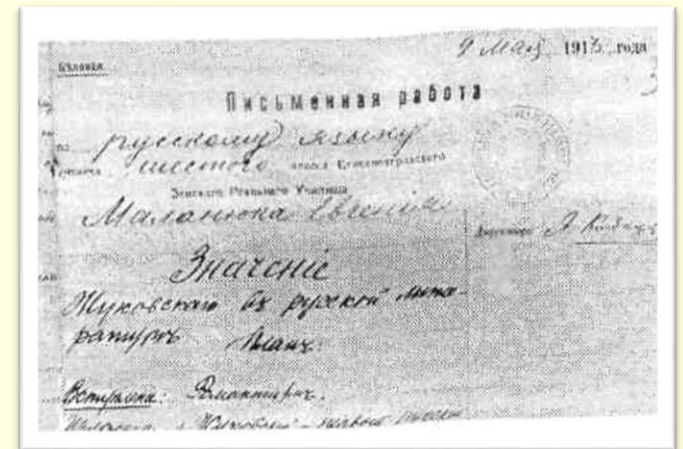 9 Мая 1913 года
Бѣловая.
Письменная работа
по русскому языку
ученика шестого класса Елисаветградскаго
Земскаго Реальнаго Училища
Маланюка Евгенія
Директоръ
Значеніе
Жуковскаго въ русской лите-
ратурѣ. Планъ:
Вступленіе: Романтизмъ.
Жуковскій - первый